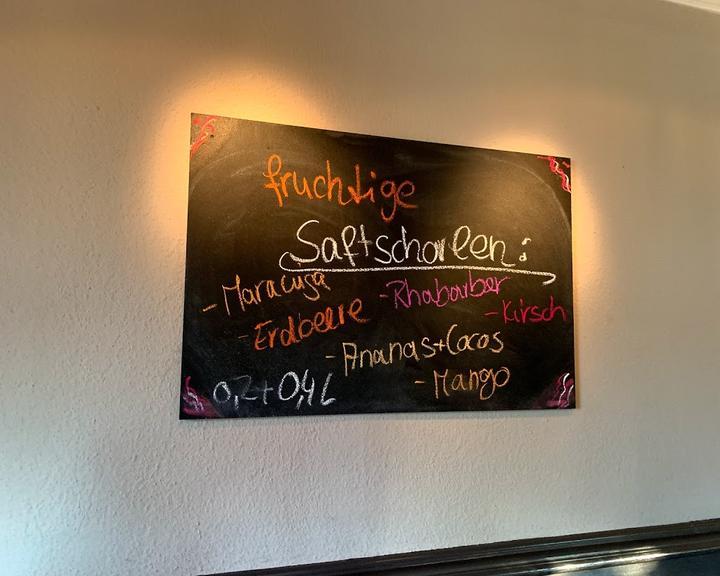 fruchtige
Saftschorlen:
- Maracuja
- Rhabarber
- Kirsch
- Erdbeere
- Ananas+Cocos
- Mango
0,2+0,4L